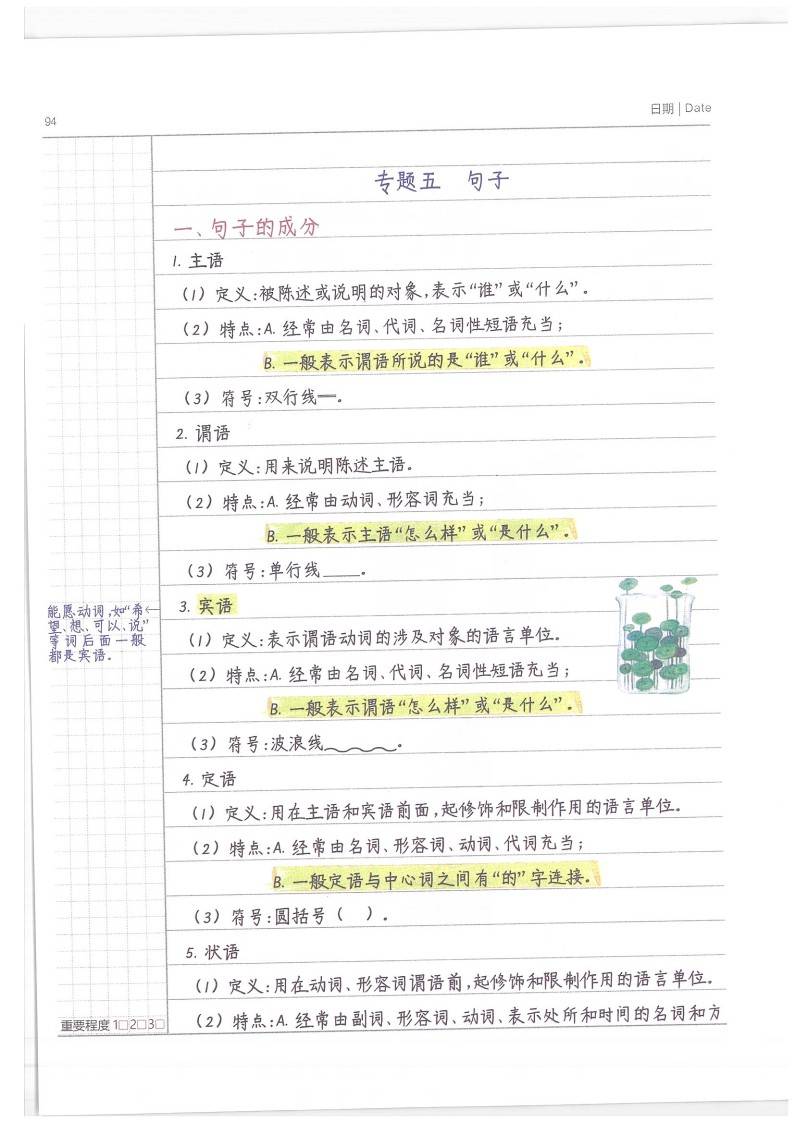 94
日期 | Date
专题五 句子
一、句子的成分
1. 主语
(1) 定义:被陈述或说明的对象,表示“谁”或“什么”。
(2) 特点:A. 经常由名词、代词、名词性短语充当;
B. 一般表示谓语所说的是“谁”或“什么”。
(3) 符号:双行线═。
2. 谓语
(1) 定义:用来说明陈述主语。
(2) 特点:A. 经常由动词、形容词充当;
B. 一般表示主语“怎么样”或“是什么”。
(3) 符号:单行线____。
能愿动词,如“希
望、想、可以、说”
等词后面一般
都是宾语。
3. 宾语
(1) 定义:表示谓语动词的涉及对象的语言单位。
(2) 特点:A. 经常由名词、代词、名词性短语充当;
B. 一般表示谓语“怎么样”或“是什么”。
(3) 符号:波浪线﹏﹏。
4. 定语
(1) 定义:用在主语和宾语前面,起修饰和限制作用的语言单位。
(2) 特点:A. 经常由名词、形容词、动词、代词充当;
B. 一般定语与中心词之间有“的”字连接。
(3) 符号:圆括号( )。
5. 状语
(1) 定义:用在动词、形容词谓语前,起修饰和限制作用的语言单位。
(2) 特点:A. 经常由副词、形容词、动词、表示处所和时间的名词和方
重要程度 1□2□3□